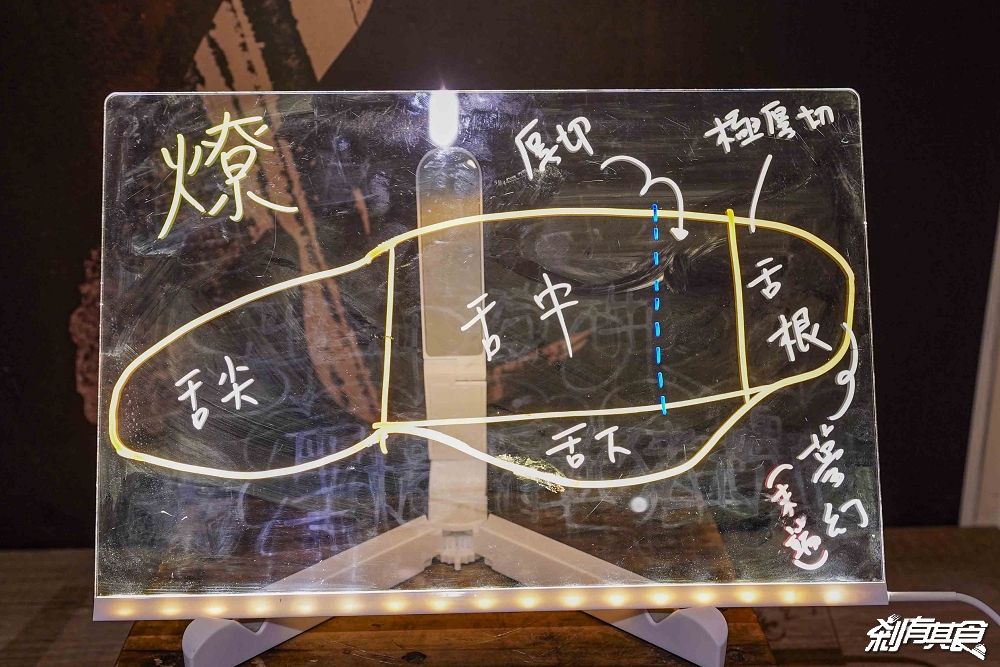 燎
厚切
極厚切
舌尖
舌中
舌根
舌下
夢幻
(末端)
剎有其食